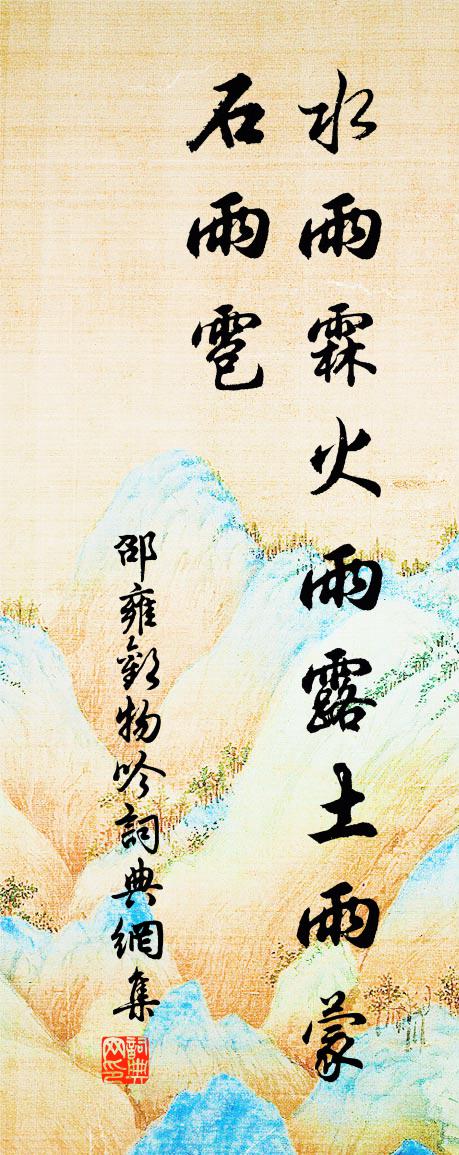 水雨霖火雨露土雨蒙
石雨雹
邵雍觀物吟詞典網集
詞典
网印